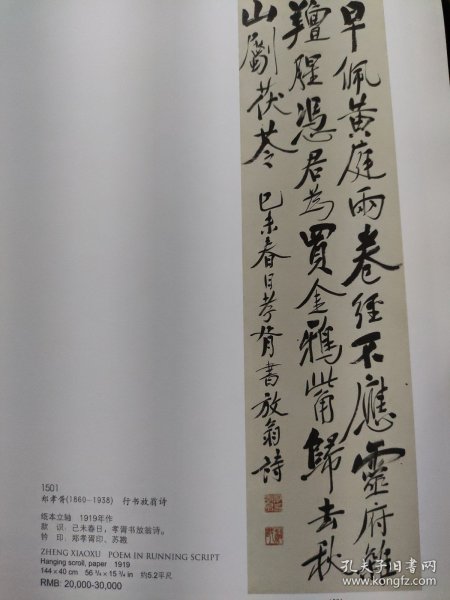 早佩黃庭兩卷經不應靈府雜
羶腥憑君為買金鴉觜歸去秋
山劚茯苓 己未春日孝胥書放翁詩
1501
郑孝胥(1860-1938) 行书放翁诗
纸本立轴 1919年作
款 识：己未春日，孝胥书放翁诗。
钤 印：郑孝胥印、苏戡
ZHENG XIAOXU POEM IN RUNNING SCRIPT
Hanging scroll, paper 1919
144 × 40 cm 56 ¾ × 15 ¾ in 约5.2平尺
RMB: 20,000-30,000
孔夫子旧书网